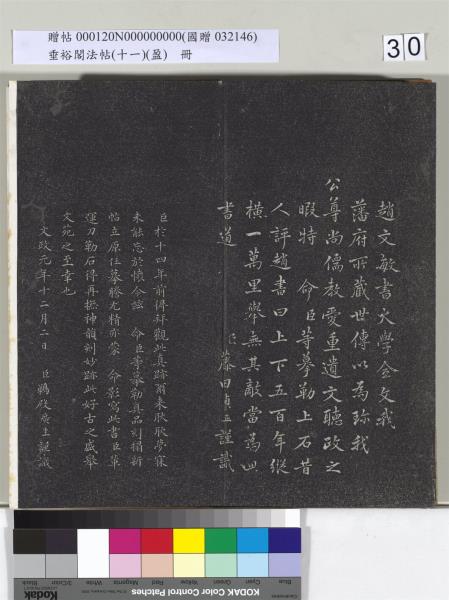 贈帖 000120N000000000(國贈 032146)
垂裕閣法帖(十一)(盈) 冊
30
趙文敏書大學全文我
藩府所藏世傳以為珎我
公尊尚儒教愛重遺文聽政之
暇特 命臣等摹勒上石昔
人評趙書曰上下五百年縱
橫一萬里舉無其敵當為此
書道
臣藤田貞 謹識
臣於十四年前得拜觀此真跡爾来欣欣夢寐
未能忘於懷今玆 命臣等摹勒真品刻搨新
帖立原任摹勝尤精亦蒙 命影寫此書臣葦
運刀勒石得再撫神韻刻妙跡此好古之盛舉
文苑之至幸也
文政元年十二月二日 臣鵜殷 主 謹識
Blue
Cyan
Green
Yellow
Red
Magenta
White
3/Color
Black
KODAK Color Control Patches
Kodak